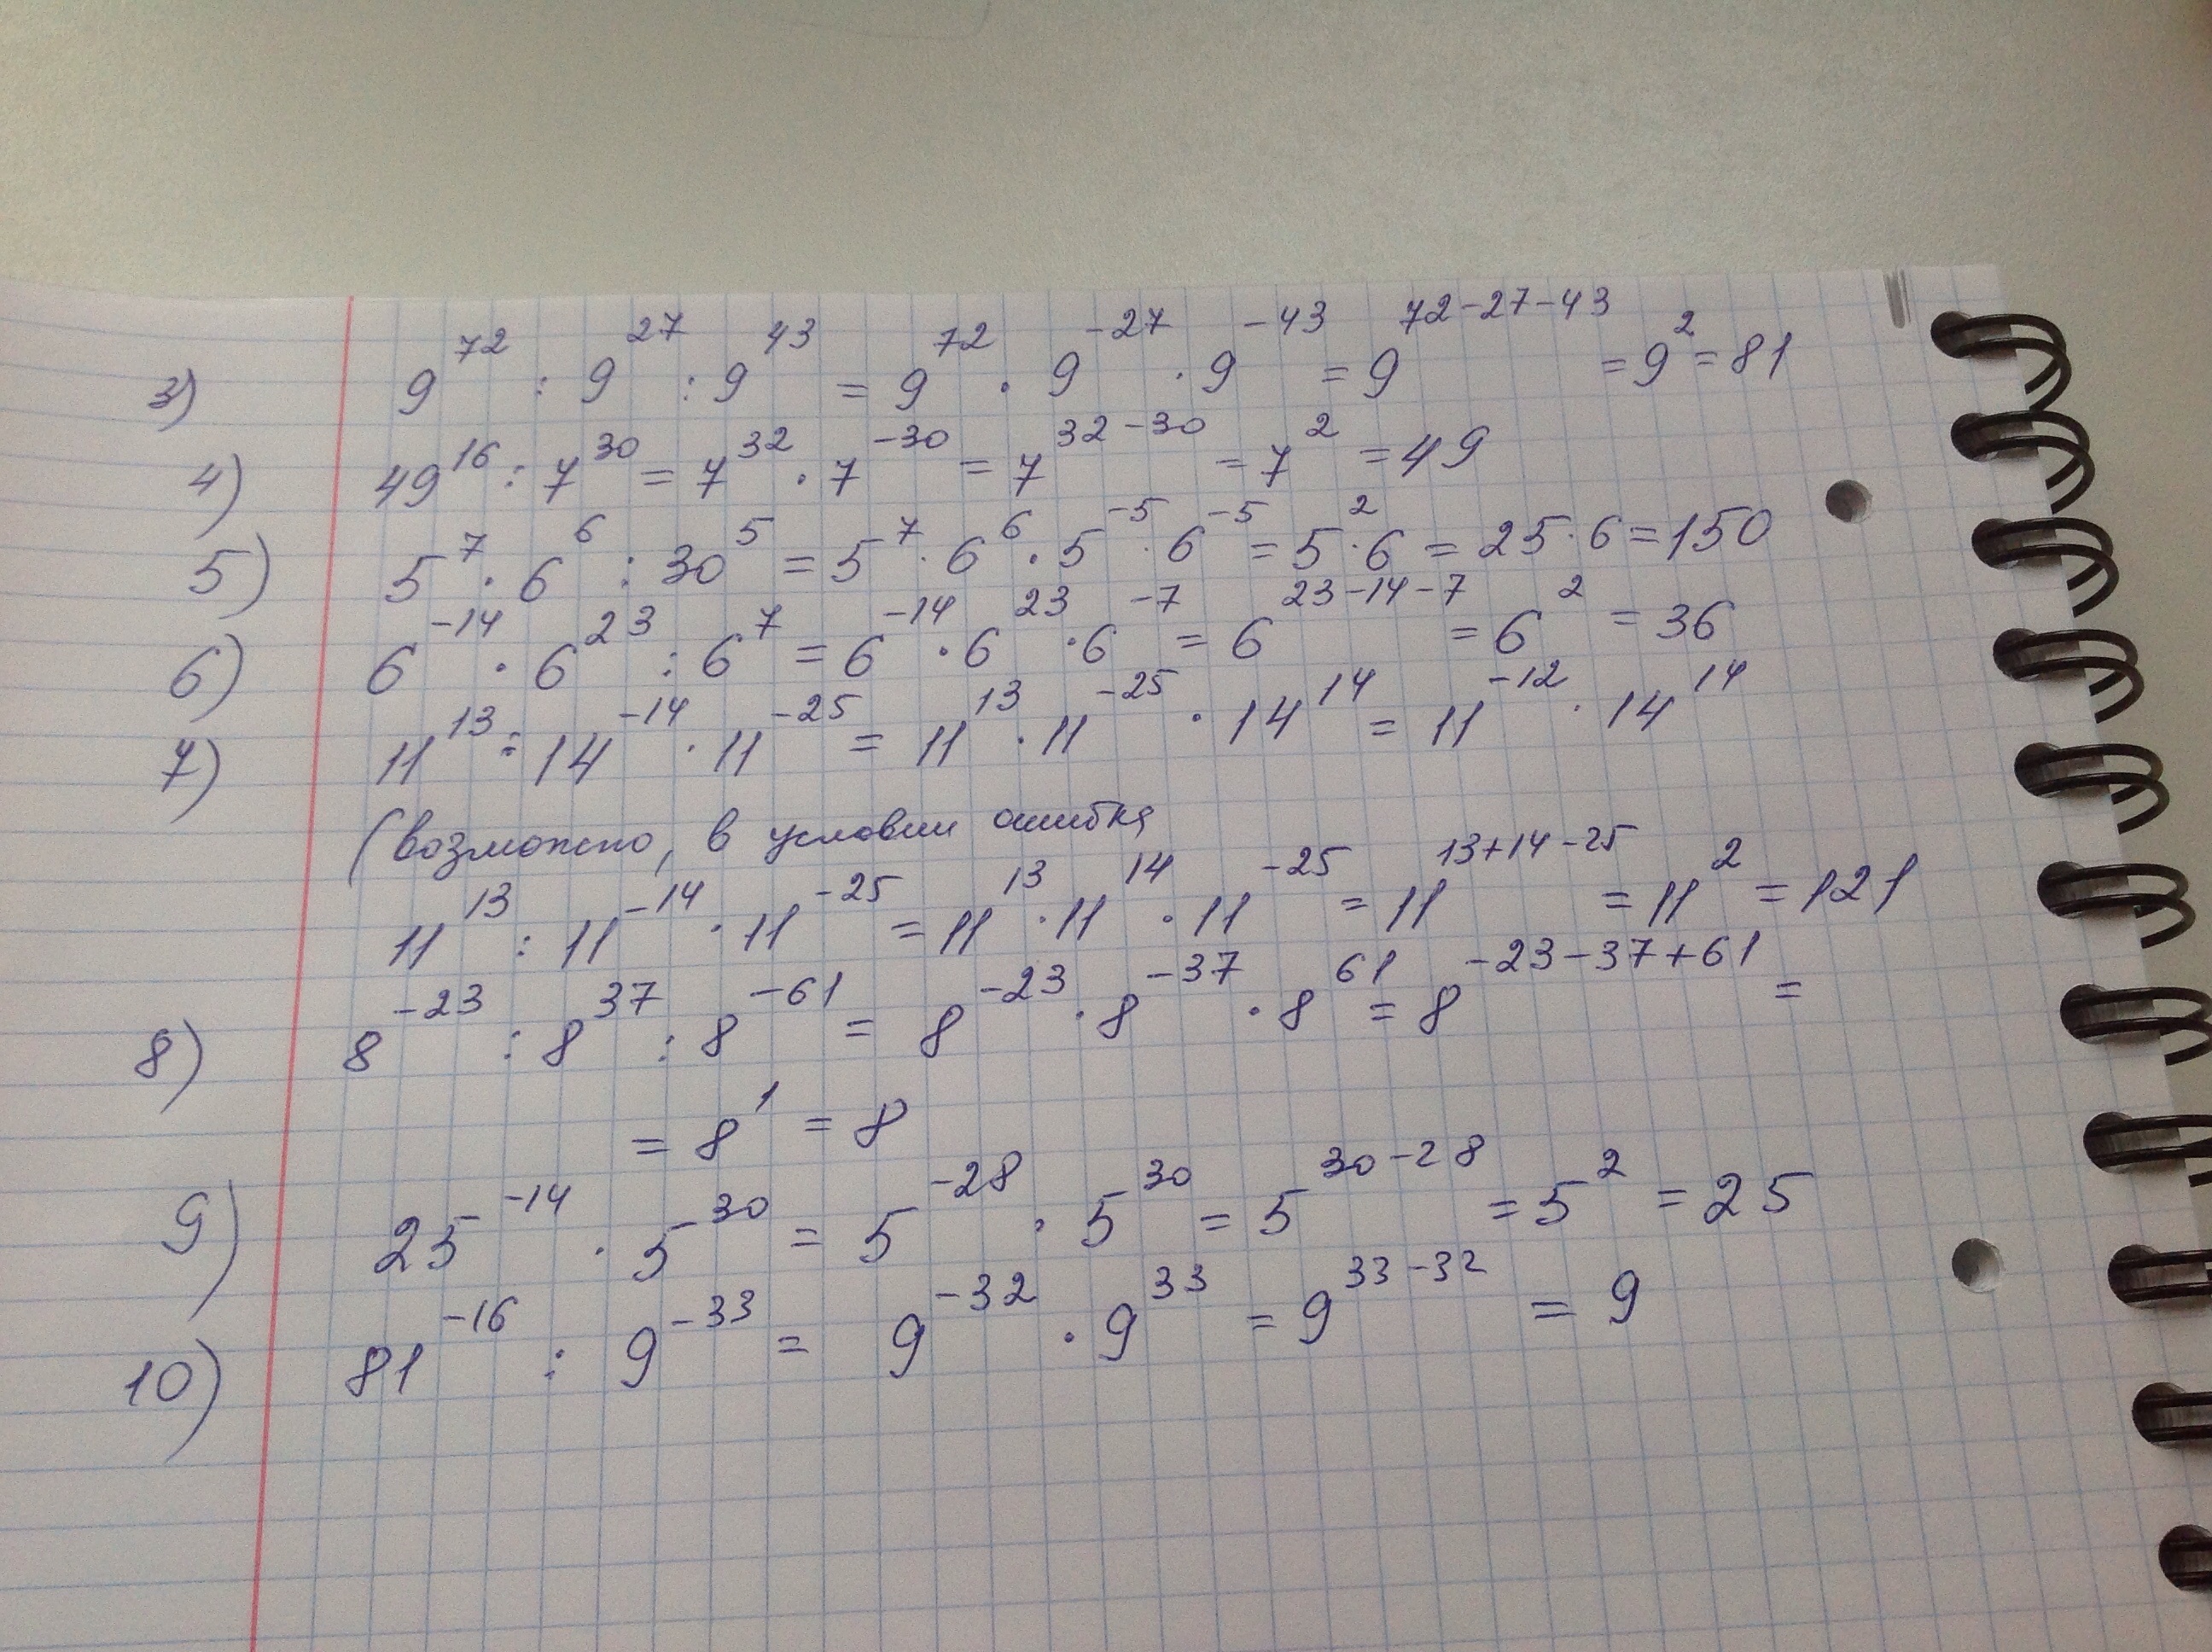 3) 9⁷² : 9²⁷ : 9⁴³ = 9⁷² · 9⁻²⁷ · 9⁻⁴³ = 9⁷²⁻²⁷⁻⁴³ = 9² = 81
4) 49¹⁶ : 7³⁰ = 7³² · 7⁻³⁰ = 7³²⁻³⁰ = 7² = 49
5) 5⁷ · 6⁶ : 30⁵ = 5⁷ · 6⁶ · 5⁻⁵ · 6⁻⁵ = 5² · 6 = 25 · 6 = 150
6) 6⁻¹⁴ · 6²³ : 6⁷ = 6⁻¹⁴ · 6²³ · 6⁻⁷ = 6²³⁻¹⁴⁻⁷ = 6² = 36
7) 11¹³ : 14⁻¹⁴ · 11⁻²⁵ = 11¹³ · 11⁻²⁵ · 14¹⁴ = 11⁻¹² · 14¹⁴
(возможно, в условии ошибка
11¹³ : 11⁻¹⁴ · 11⁻²⁵ = 11¹³ · 11¹⁴ · 11⁻²⁵ = 11¹³⁺¹⁴⁻²⁵ = 11² = 121
8) 8⁻²³ : 8³⁷ : 8⁻⁶¹ = 8⁻²³ · 8⁻³⁷ · 8⁶¹ = 8⁻²³⁻³⁷⁺⁶¹ =
= 8¹ = 8
9) 25⁻¹⁴ · 5³⁰ = 5⁻²⁸ · 5³⁰ = 5³⁰⁻²⁸ = 5² = 25
10) 81⁻¹⁶ : 9⁻³³ = 9⁻³² · 9³³ = 9³³⁻³² = 9